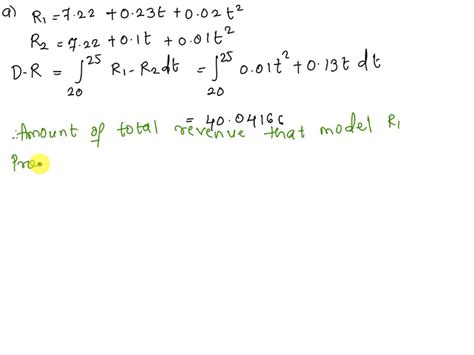 a) R₁ = 7.22 + 0.23t + 0.02t²
R₂ = 7.22 + 0.1t + 0.01t²
D-R = ∫₂₀²⁵ R₁ - R₂ dt = ∫₂₀²⁵ 0.01t² + 0.13t dt
= 40.04166
∴ Amount of total revenue that model R₁
Pro